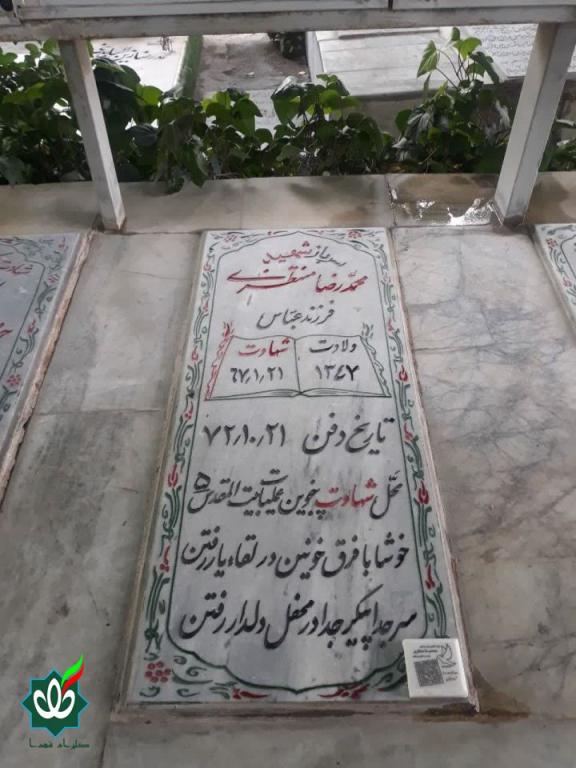 سرباز شهید
محمدرضا منتظری
فرزند عباس
ولادت شهادت
۱۳۴۷ ۶۷٫۱٫۲۱
تاریخ دفن ۷۲٫۱۰٫۲۱
محل شهادت جوین عملیات بیت المقدس ۵
خوشا با فرق خونین در لقاء یار رفتن
سر جدا پیکر جدا در محفل دلدار رفتن
گلزار شهدا